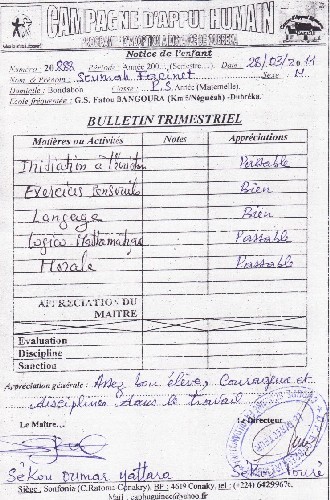 CAMPAGNE D'APPUI HUMAIN
Notice de l'enfant
Numéro : 20888 Période : Année 200 (Semestre Date 28/03/2011
Nom & Prénom : Soumah Sexe : M
Domicile : Bondabon Classe : P.S Année (Maternelle).
Ecole fréquentée : G.S. Fatou BANGOURA (Km 5/Néguéah) -Dubréka.
BULLETIN TRIMESTRIEL
Matières ou Activités Notes Appréciations
Initiation à Passable
Exercices Sensoriels Bien
Langage Bien
Logico Mathématique Passable
Morale Passable
APPRECIATION DU
MAITRE
Evaluation
Discipline
Sanction
Appréciation générale : Assez bon élève, Courageux et
discipliné dans le travail
Le Maître... Le Directeur
Sékou Oumar Yattara Sékou Touré
Siège : Sonfonia (C.Ratoma-Conakry). BP : 4619 Conaky. tel : (+224) 64299676.
Mail : caphuguinee@yahoo.fr